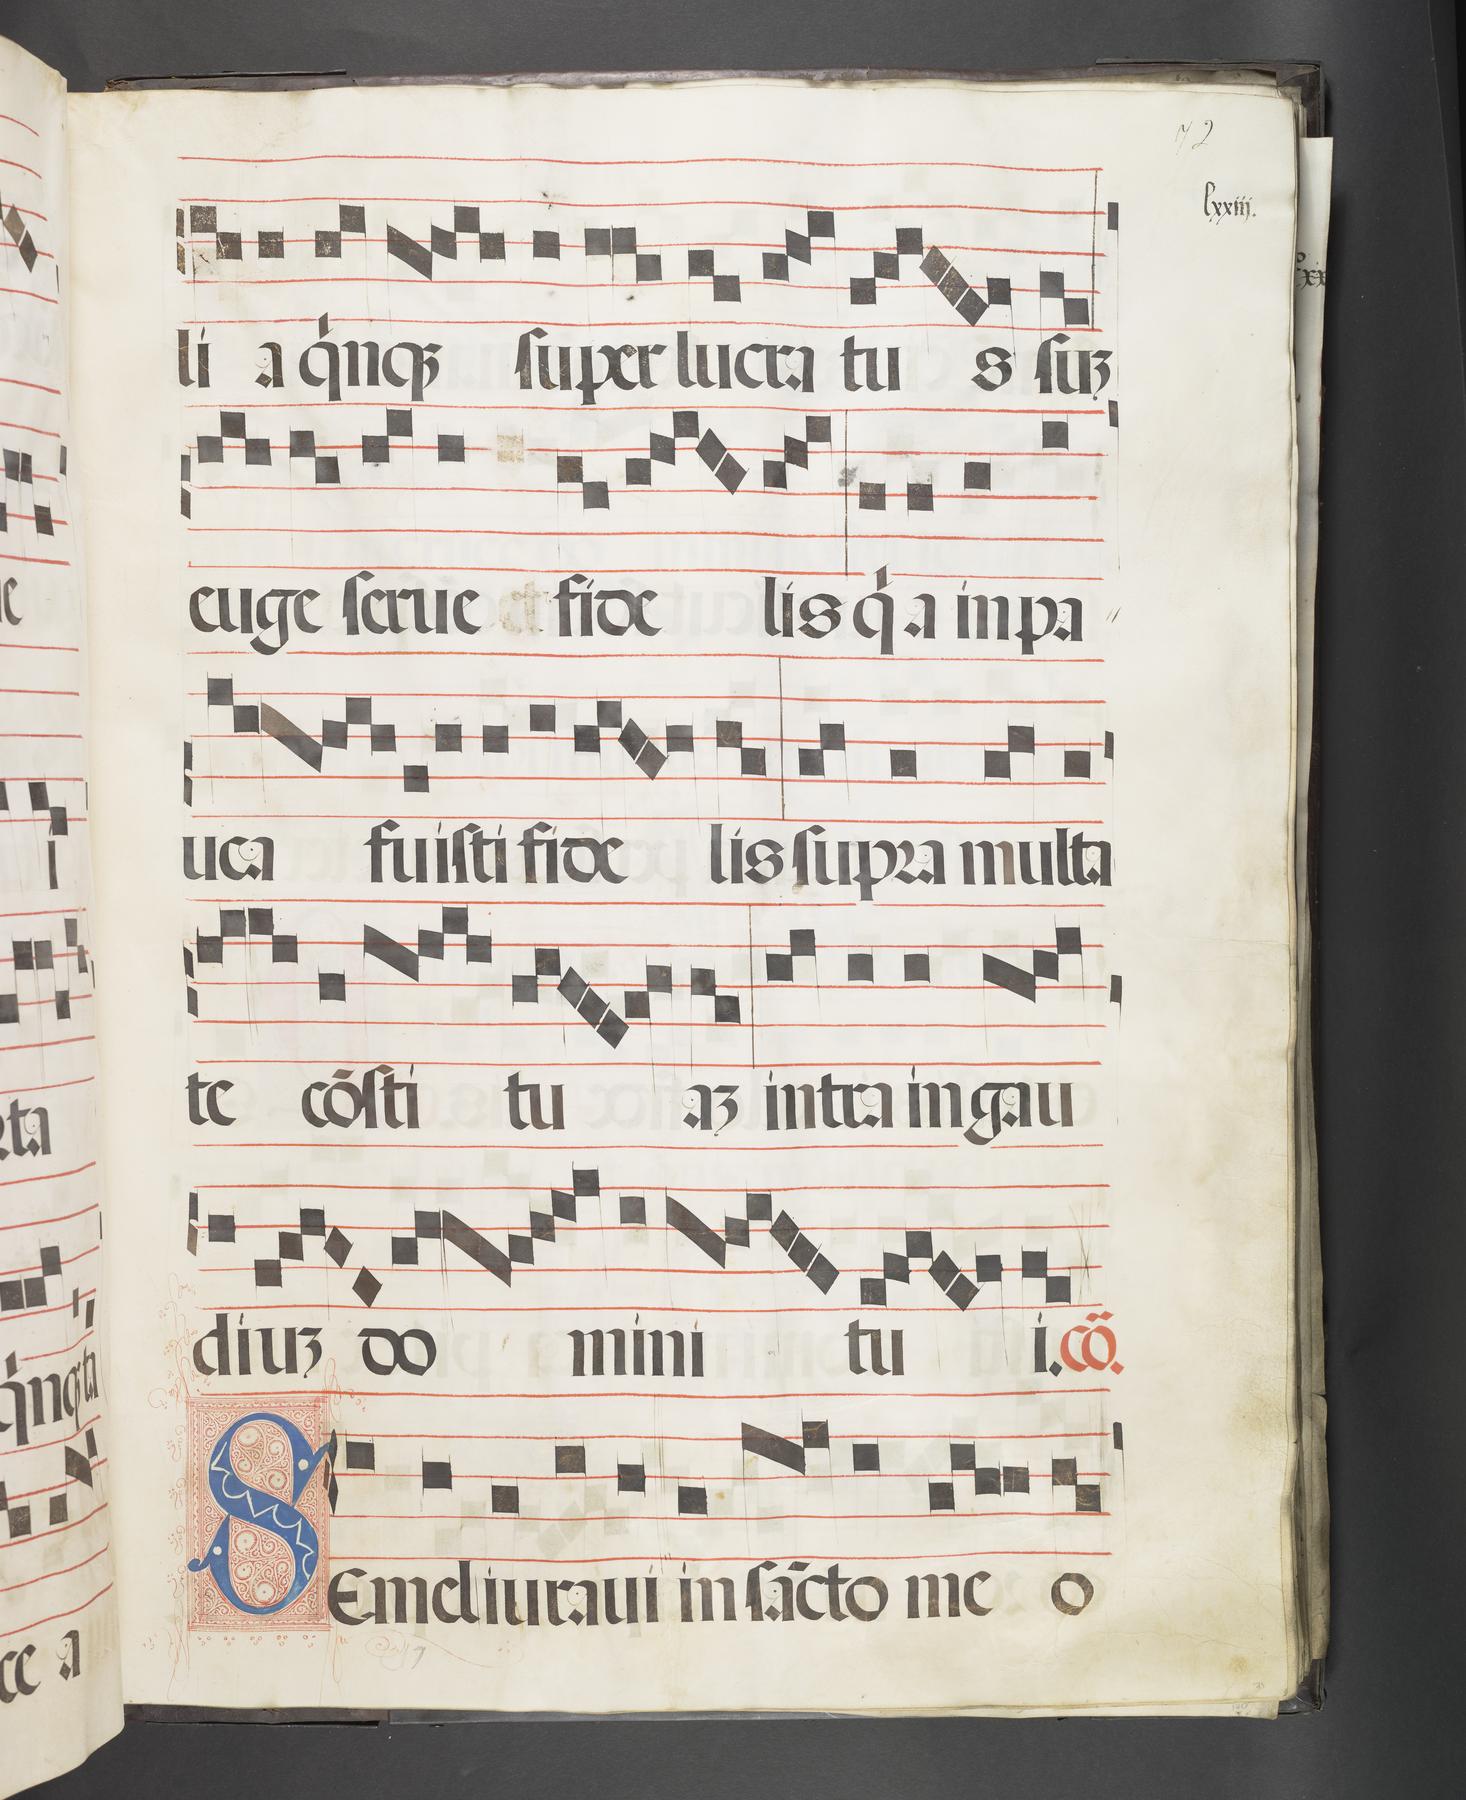 72
lxxiii.
li a q̇nqꝫ super lucra tu s suꝫ
euge serue fide lis q̇ a in pa
uca fuisti fide lis supra multa
te cōsti tu aꝫ intra in gau
diuꝫ do mini tu i. cō.
SEmel iuraui in sācto me o